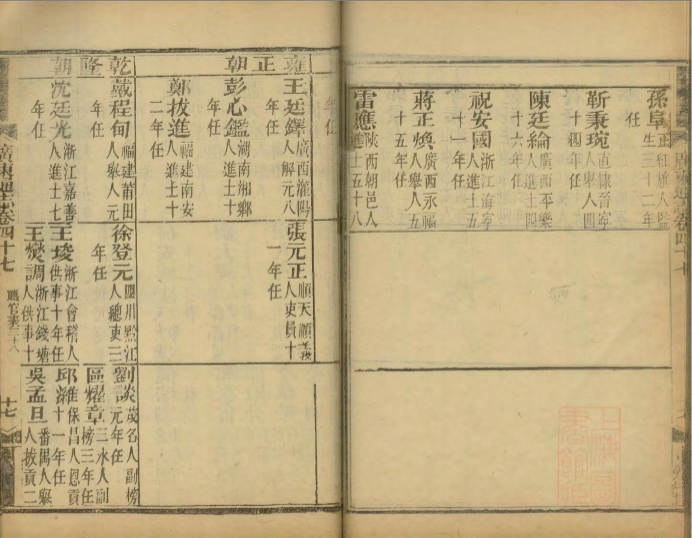 孫阜 正紅旗人監生三十二年任
靳秉琬 直隸晉寧人舉人四十四年任
陳廷綸 廣西平樂人進士四十六年任
祝安國 浙江海寧人進士五十一年任
蔣正煥 廣西永福人舉人五十五年任
雷應 陝西朝邑人進士五十八
雍正朝
王廷鐸 廣西灌陽人解元八年任
張元正 順天人吏員十一年任
彭心鑑 湖南湘鄉人進士十年任
鄭拔進 福建南安人進士十二年任
乾隆朝
戴程甸 福建莆田人舉人元年任
徐登元 四川墊江人總吏三年任
劉談 茂名人副榜元年任
區燿章 三水人副榜三年任
沈廷光 浙江嘉善人進士七年任
王琰 浙江會稽人供事十年任
邱 保昌人恩貢十一年任
王燮調 浙江錢塘人供事十
吳孟旦 番禺人舉人拔貢二
廣東通志卷四十七
職官表三十八
十七